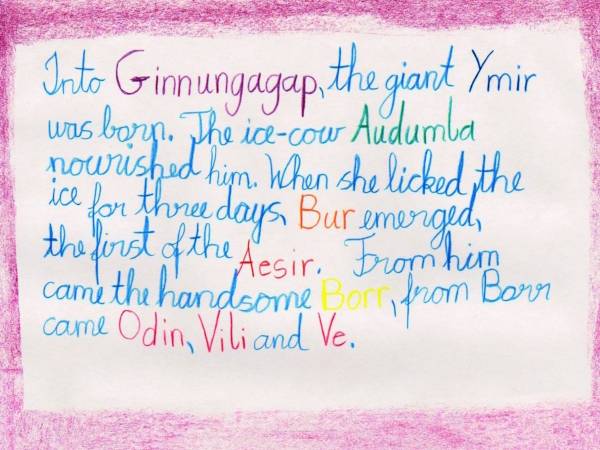 Into Ginnungagap, the giant Ymir
was born. The ice-cow Audumla
nourished him. When she licked the
ice for three days, Bur emerged,
the first of the Aesir. From him
came the handsome Borr, from Borr
came Odin, Vili and Ve.